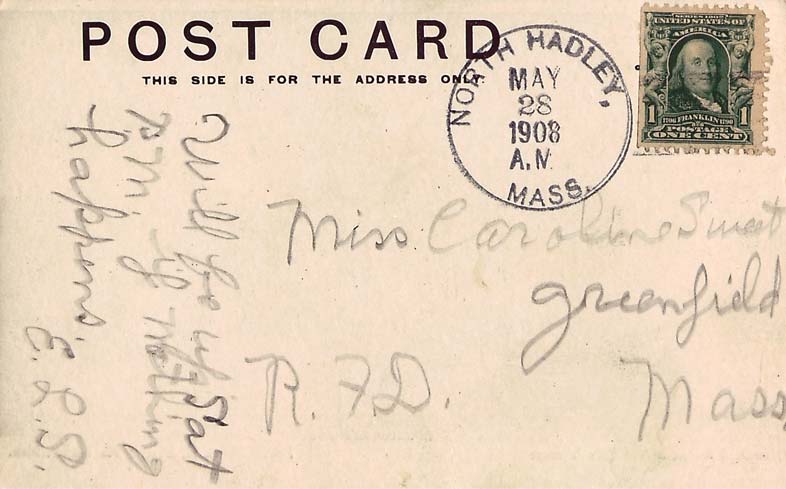 POST CARD
THIS SIDE IS FOR THE ADDRESS ONLY
NORTH HADLEY,
MAY
28
1908
A.M.
MASS.
SERIES 1902
UNITED STATES OF
AMERICA
1 1706 FRANKLIN 1790 1
POSTAGE
ONE CENT
Miss Caroline Smeat
Greenfield
R.F.D. Mass
Will be up Sat
P.M if nothing
happens.
E.L.S.